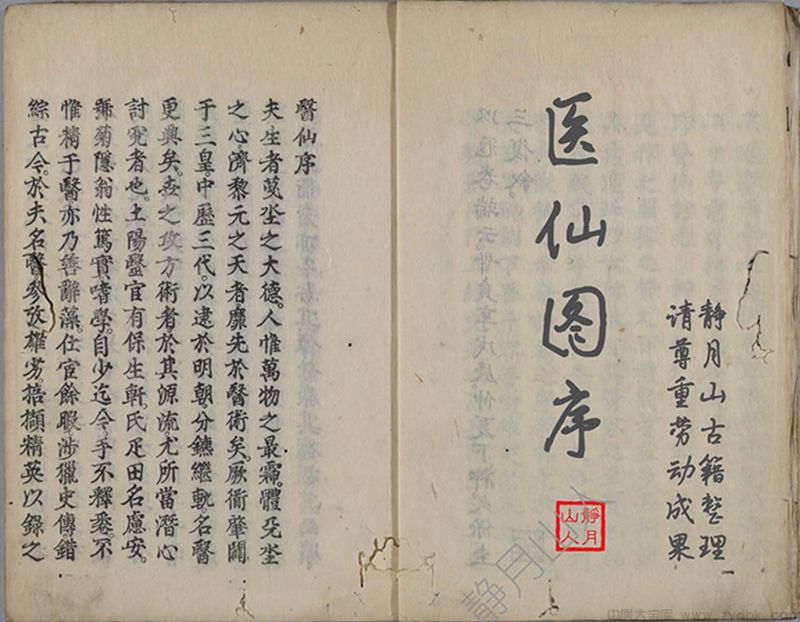 静月山古籍整理
请尊重劳动成果
医仙图序
靜月山人
醫仙序
夫生者之大德。人惟萬物之最霛。體
之心。濟黎元之天者。靡先於醫術矣。厥術肇闢
于三皇。中歷三代。以逮於明朝。分鑣繼軌。名醫
更興矣。世之攻方術者。於其源流。尤所當潛心
討究者也。土陽毉官有保生軒。氏疋田。名慮安。
號菊隱翁。性篤實嗜學。自少迄今。手不釋卷。不
惟精于醫。亦乃善辭藻。仕宦餘暇。涉獵史傳。錯
綜古今。於夫名醫。參攷雄劣。捃擷精英。以錄之
静月山人
中医大宝库 www.zydbk.com